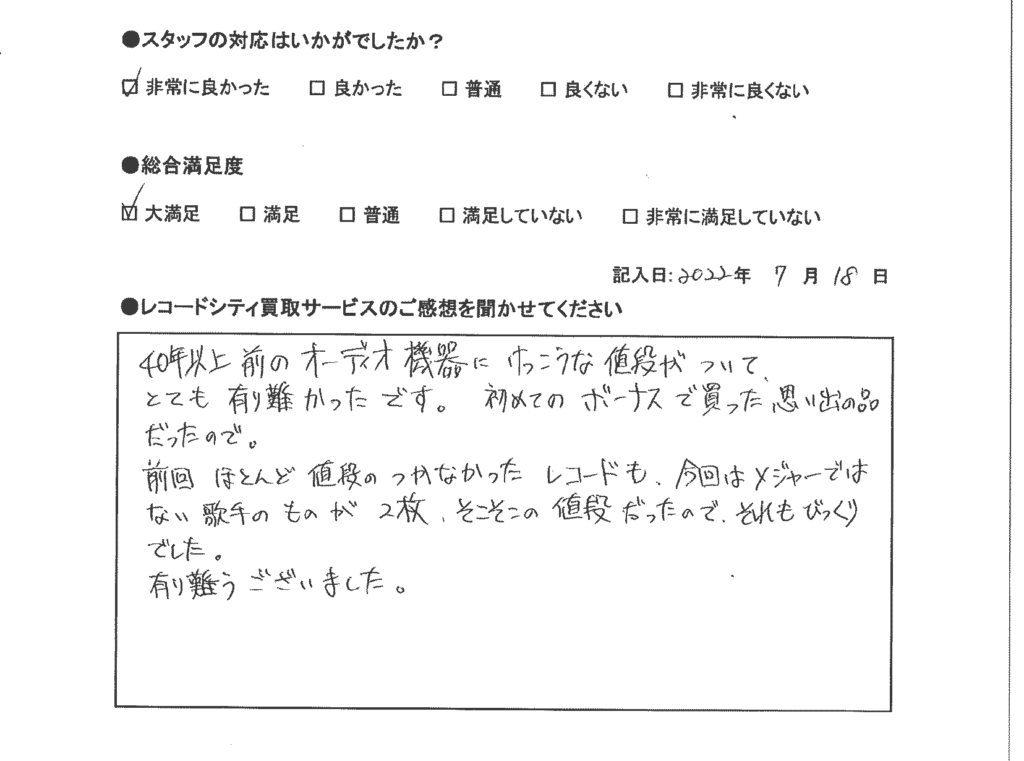 ●スタッフの対応はいかがでしたか？
☑ 非常に良かった □ 良かった □ 普通 □ 良くない □ 非常に良くない
●総合満足度
☑ 大満足 □ 満足 □ 普通 □ 満足していない □ 非常に満足していない
記入日:2022年 7 月 18 日
●レコードシティ買取サービスのご感想を聞かせてください
40年以上前のオーディオ機器にけっこうな値段がついて、
とても有り難かったです。 初めてのボーナスで買った思い出の品
だったので。
前回ほとんど値段のつかなかったレコードも、今回はメジャーでは
ない歌手のものが2枚、そこそこの値段だったので、それもびっくり
でした。
有り難うございました。